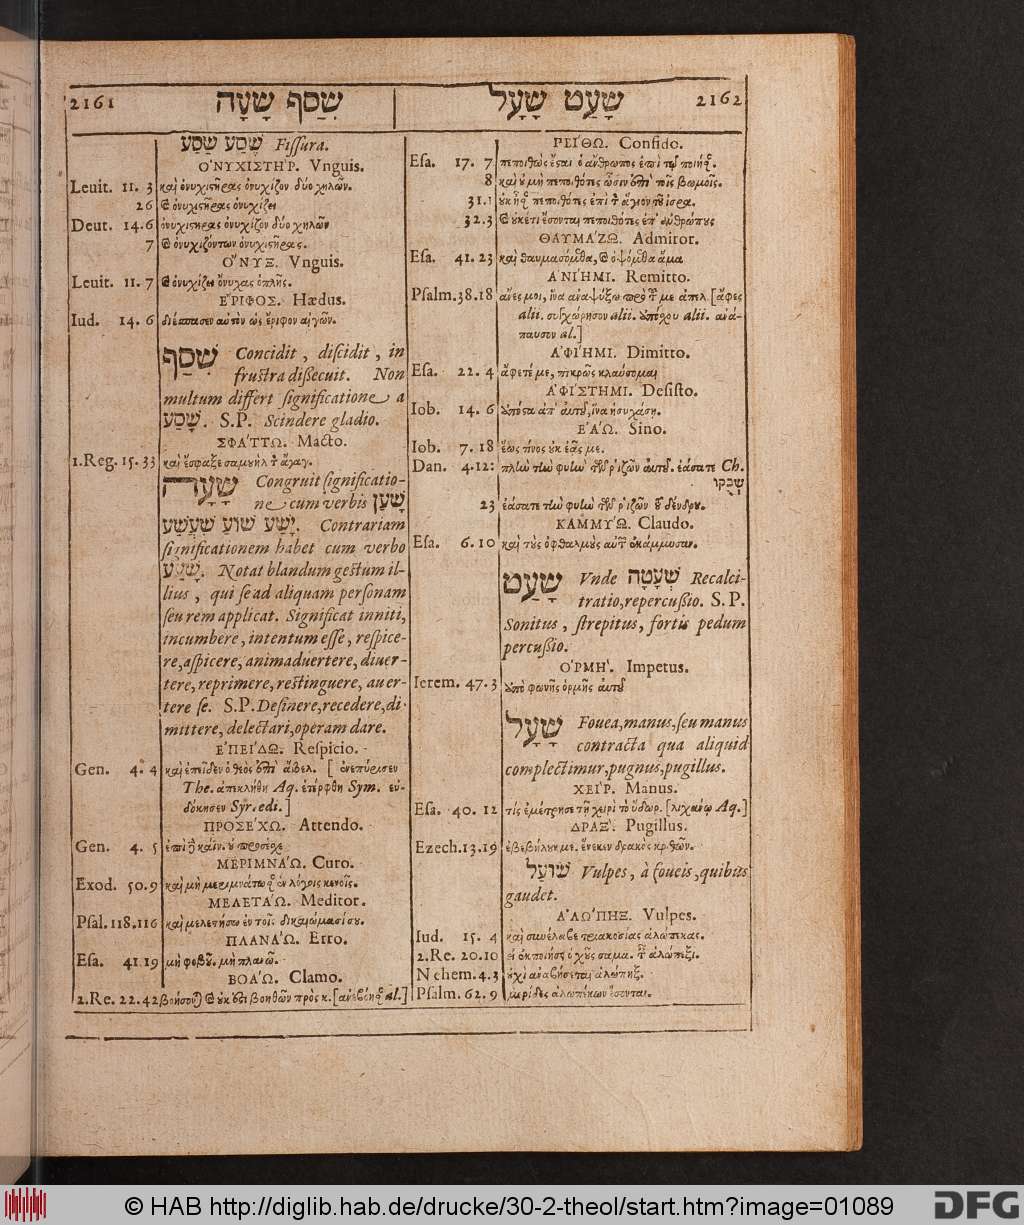 2161 שִׁסַּף שָׁעָה
שָׁעַט שָׁעָל 2162
שֶׁסַע שַׁסַע Fiſſura.
ὈΝΥΧΙΣΤῊΡ. Vnguis.
Leuit. 11. 3 καὶ ὀνυχιστῆρας ὀνυχίζον δύο χηλῶν.
26 & ὀνυχιστῆρας ὀνυχίζει
Deut. 14.6 ὀνυχιστῆρας ὀνυχίζον δύο χηλῶν
7 & ὀνυχιζόντων ὀνυχιστῆρας.
ὌΝΥΞ. Vnguis.
Leuit. 11. 7 & ὀνυχίζει ὄνυχας ὁπλῆς.
ἜΡΙΦΟΣ. Hædus.
Iud. 14. 6 διέσπασεν αὐτὸν ὡς ἔριφον αἰγῶν.
שִׁסַּף Concidit, diſcidit, in
fruſtra dißecuit. Non
multum differt ſignificatione a
שָׁסַע. S.P. Scindere gladio.
ΣΦΑΤΤΩ. Macto.
1.Reg. 15. 33 καὶ ἔσφαξε σαμουὴλ τὸν ἄγαγ.
שָׁעָה Congruit ſignificatio-
ne cum verbis שָׁעַן
יָשַׁע שׁוּע שַׁעֲשַׁע. Contrariam
ſignificationem habet cum verbo
Notat blandum geſtum il-
lius, qui ſe ad aliquam perſonam
ſeu rem applicat. Significat inniti,
incumbere, intentum eſſe, reſpice-
re, aſpicere, animaduertere, diuer-
tere, reprimere, reſtinguere, auer-
tere ſe. S.P. Deſinere, recedere, di-
mittere, delectari, operam dare.
ἘΠΕΙΔΩ. Reſpicio.
Gen. 4. 4 καὶ ἐπεῖδεν ὁ θεὸς ἐπὶ ἄβελ. [ ἐνεπύρισεν
The. ἐπεκλήθη Aq. ἐτέρφθη Sym. εὐ-
δόκησεν Syr. edi.]
ΠΡΟΣΕΧΩ. Attendo.
Gen. 4. 5 ἐπὶ δὲ κάϊν. οὐ προσέσχε
ΜΕΡΙΜΝΑΩ. Curo.
Exod. 50.9 καὶ μὴ μεριμνάτωσαν ἐν λόγοις κενοῖς.
ΜΕΛΕΤΑΩ. Meditor.
Pſal. 118.116 καὶ μελετήσω ἐν τοῖς δικαιώμασί σου.
ΠΛΑΝΑΩ. Erro.
Eſa. 41.19 μὴ φοβοῦ. μὴ πλανῶ.
ΒΟΑΩ. Clamo.
2.Re. 22.42 βοήσονται & οὐκ ἔστι βοηθῶν πρὸς κ.
ΠΕΙΘΩ. Confido.
Eſa. 17. 7 πεποιθὼς ἔσται ὁ ἄνθρωπος ἐπὶ τῷ ποιής.
8 καὶ οὐ μὴ πεποιθότες ὦσιν ἐπὶ τοῖς βωμοῖς.
31.1 οὐκ ἦσαν πεποιθότες ἐπὶ τὸν ἅγιον τοῦ ἰσρα.
32.3 & οὐκέτι ἔσονται πεποιθότες ἐπ' ἀνθρώποις
ΘΑΥΜΑΖΩ. Admiror.
Eſa. 41. 23 καὶ θαυμασόμεθα, & ὀψόμεθα ἅμα
ἈΝΙΗΜΙ. Remitto.
Pſalm. 38.18 ἄνες μοι, ἵνα ἀναψύξω πρὸ τοῦ με ἀπελ. [ἄφες
alii. συγχώρησον alii. alii. ἀνά-
παυσον al.]
ἈΦΙΗΜΙ. Dimitto.
Eſa. 22. 4 ἄφετέ με, πικρῶς κλαύσομαι
ἈΦΙΣΤΗΜΙ. Deſiſto.
Iob. 14. 6 ἀπόστα ἀπ' αὐτοῦ, ἵνα ἡσυχάσῃ.
ἘΑΩ. Sino.
Iob. 7. 18 ἕως τίνος οὐκ ἐᾷς με.
Dan. 4.12: πλὴν τὴν φυὴν τῶν ῥιζῶν αὐτοῦ. ἐάσατε Ch.
שְׁבֻקוּ
23 ἐάσατε τὴν φυὴν τῶν ῥιζῶν τοῦ δένδρου.
ΚΑΜΜΥΩ. Claudo.
Eſa. 6.10 καὶ τοὺς ὀφθαλμοὺς αὐτῶν ἐκάμμυσαν.
שָׁעַט Vnde שְׁעָטָה Recalci-
tratio, repercußio. S.P.
Sonitus, ſtrepitus, fortis pedum
percußio.
ὉΡΜΗ. Impetus.
Ierem. 47. 3 ἀπὸ φωνῆς ὁρμῆς αὐτοῦ
שָׁעָל Fouea, manus, ſeu manus
contracta qua aliquid
complectimur, pugnus, pugillus.
ΧΕΙΡ. Manus.
Eſa. 40. 12 τίς ἐμέτρησε τῇ χειρὶ τὸ ὕδωρ. [λιχάνῳ Aq.]
ΔΡΑΞ. Pugillus.
Ezech. 13.19 ἐβεβήλουν με. ἕνεκεν δρακὸς κριθῶν.
שׁוּעָל Vulpes, à foueis, quibus
gaudet.
ἈΛΩΠΗΞ. Vulpes.
Iud. 15. 4 καὶ συνέλαβε τριακοσίας ἀλώπεκας.
2.Re. 20.10 εἰ ἐκποιήσει ὁ χοῦς σαμα. ταῖς ἀλώπεξι.
Nehem. 4.3 οὐχὶ ἀναβήσεται ἀλώπηξ.
Pſalm. 62. 9 μερίδες ἀλωπέκων ἔσονται.
© HAB http://diglib.hab.de/drucke/30-2-theol/start.htm?image=01089
DFG